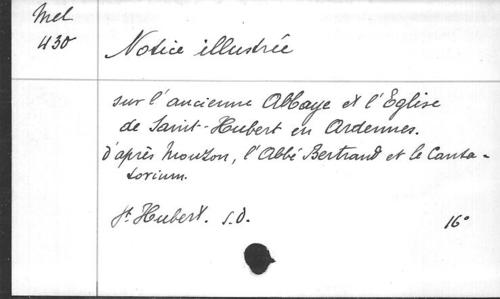 Mel
430
Notice illustrée
sur l'ancienne Abbaye et l'Eglise
de Saint-Hubert en Ardennes.
d'après Mouzon, l'Abbé Bertrand et le Canta-
torium.
St Hubert. s.d.
16°